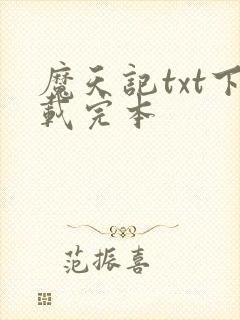 魔天记txt下
载完本
范振喜